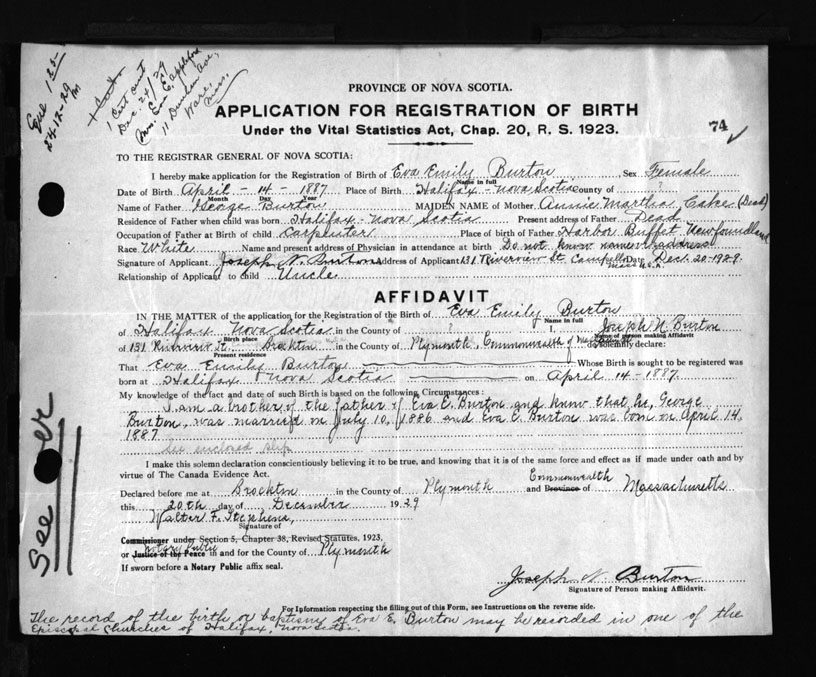 Que 1 25
24-12-29
1 Cert out
Dec 24/29
Mrs. Eva E. Appleford
11 Dunlan Ave,
Ware,
Mass.
PROVINCE OF NOVA SCOTIA.
APPLICATION FOR REGISTRATION OF BIRTH
Under the Vital Statistics Act, Chap. 20, R. S. 1923.
74
TO THE REGISTRAR GENERAL OF NOVA SCOTIA:
I hereby make application for the Registration of Birth of Eva Emily Burton Sex Female
Name in full
Date of Birth April - 14 - 1887 Place of Birth Halifax - Nova Scotia County of ?
Month Day Year
Name of Father George Burton MAIDEN NAME of Mother Annie Martha Cake (Dead)
Residence of Father when child was born Halifax - Nova Scotia Present address of Father Dead
Occupation of Father at Birth of child Carpenter Place of birth of Father Harbor Buffet Newfoundland
Race White Name and present address of Physician in attendance at birth Do not know name or address
Signature of Applicant Joseph N. Burton Address of Applicant 131 Riverview St. Campello Mass. U.S.A. Date Dec. 20-1929.
Relationship of Applicant to child Uncle
AFFIDAVIT
IN THE MATTER of the application for the Registration of the Birth of Eva Emily Burton
Name in full
of Halifax Nova Scotia in the County of ? I, Joseph N. Burton
Birth place Name of person making Affidavit
of 131 Riverview St. Brockton in the County of Plymouth, Commonwealth of do solemnly declare:
Present residence
That Eva Emily Burton Whose Birth is sought to be registered was
born at Halifax Nova Scotia on April 14 - 1887.
My knowledge of the fact and date of such Birth is based on the following Circumstances:
I am a brother of the father of Eva E. Burton and know that he, George
Burton, was married on July 10, 1886 and Eva E. Burton was born on April 14,
1887
See enclosed slip
I make this solemn declaration conscientiously believing it to be true, and knowing that it is of the same force and effect as if made under oath and by
virtue of The Canada Evidence Act.
Declared before me at Brockton in the County of Plymouth and Province of Commonwealth Massachusetts
this 20th day of December 1929
Walter F. Stephens,
Signature of
Commissioner under Section 5, Chapter 38, Revised Statutes, 1923,
Notary Public
or Justice of the Peace in and for the County of Plymouth
If sworn before a Notary Public affix seal.
Joseph N Burton
Signature of Person making Affidavit.
For Information respecting the filling out of this Form, see Instructions on the reverse side.
The record of the birth or baptism of Eva E. Burton may be recorded in one of the
Episcopal Churches of Halifax, Nova Scotia.
See over